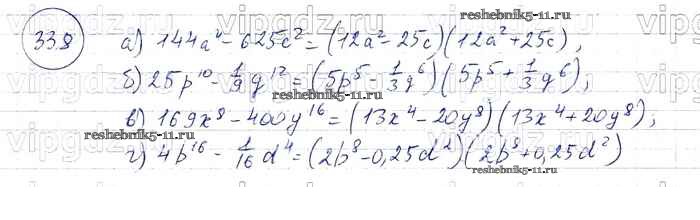 vipgdz.ru vipgdz.ru vipgdz.ru
reshebnik5-11.ru
338 а) 144a⁴ - 625c² = (12a² - 25c)(12a² + 25c),
б) 25p¹⁰ - 1/9 g¹² = (5p⁵ - 1/3 g⁶)(5p⁵ + 1/3 g⁶),
reshebnik5-11.ru
в) 169x⁸ - 400y¹⁶ = (13x⁴ - 20y⁸)(13x⁴ + 20y⁸),
reshebnik5-11.ru
г) 4b¹⁶ - 1/16 d⁴ = (2b⁸ - 0,25d²)(2b⁸ + 0,25d²)
reshebnik5-11.ru